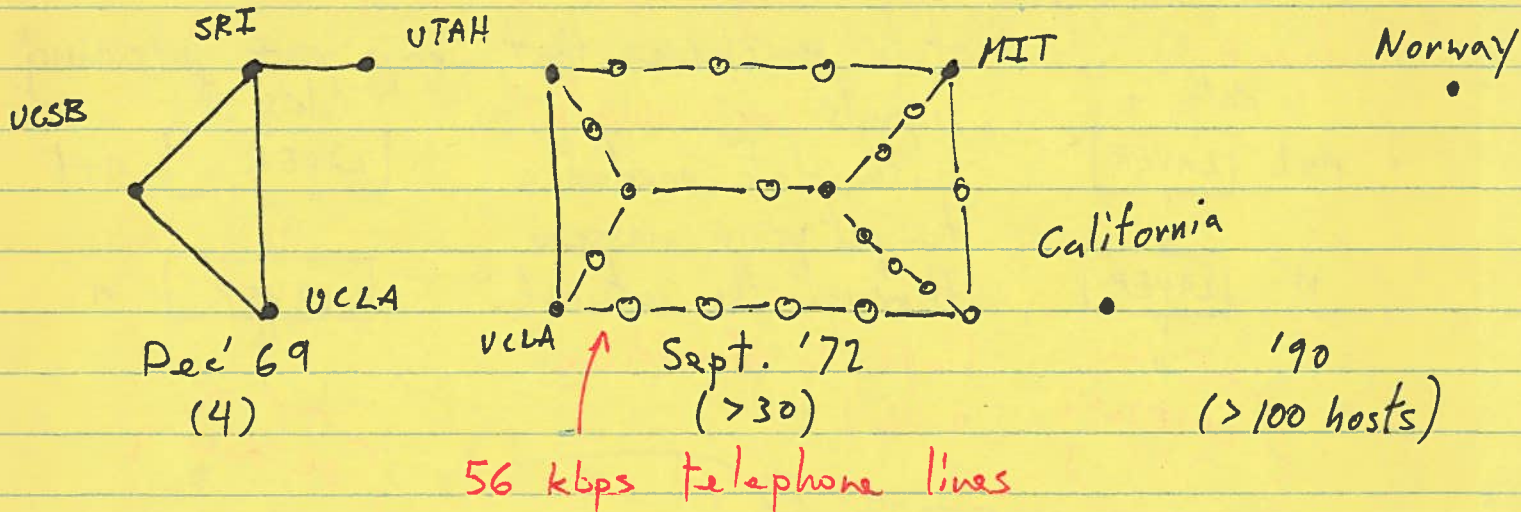 SRI
UTAH
UCSB
UCLA
Dec '69
(4)
MIT
UCLA
Sept. '72
(>30)
56 kbps telephone lines
Norway
California
'90
(>100 hosts)